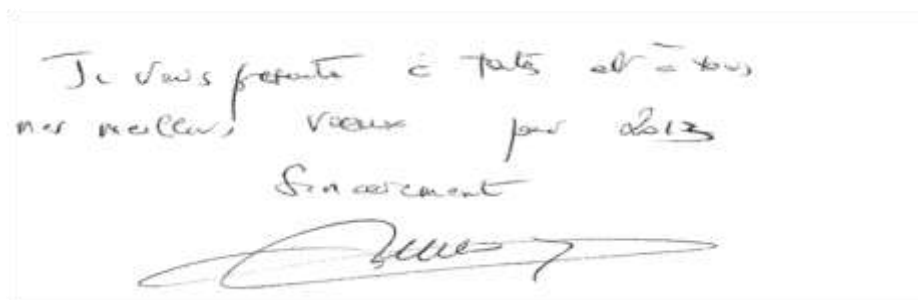 Je vous présente à toutes et à tous,
mes meilleurs vœux pour 2013
Sincèrement